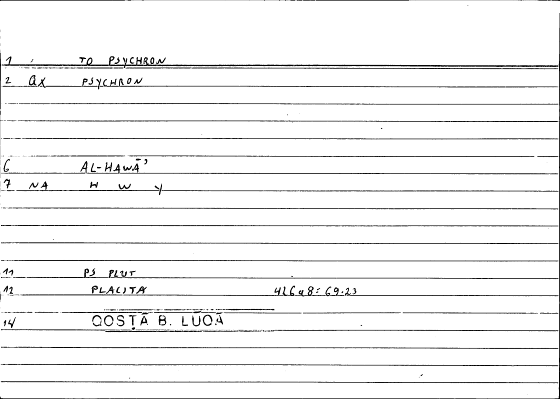 1 TO PSYCHRON
2 ax PSYCHRON
6 AL-HAWĀ'
7 NA H W Y
11 PS PLUT
12 PLACITA 426a8 = 69.23
14 QOSṬĀ B. LŪQĀ